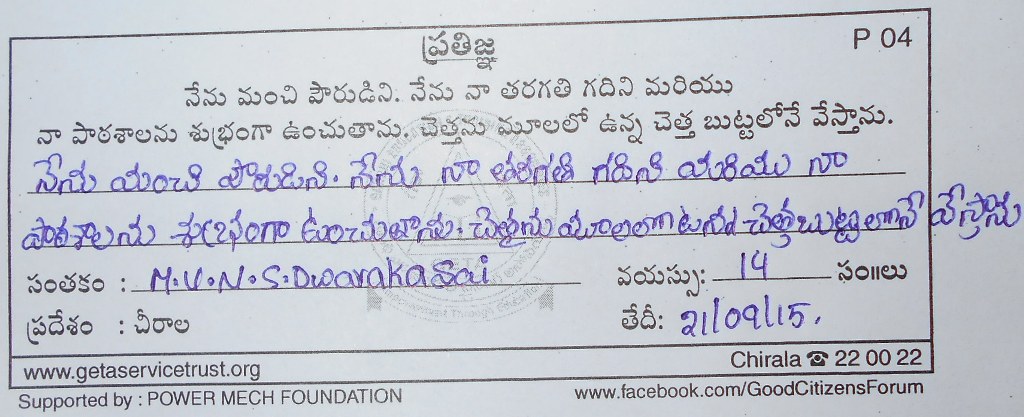 ప్రతిజ్ఞ P 04
నేను మంచి పౌరుడిని. నేను నా తరగతి గదిని మరియు
నా పాఠశాలను శుభ్రంగా ఉంచుతాను. చెత్తను మూలలో ఉన్న చెత్త బుట్టలోనే వేస్తాను.
నేను మంచి పౌరుడిని. నేను నా తరగతి గదిని మరియు నా
పాఠశాలను శుభ్రంగా ఉంచుతాను. చెత్తను మూలలో ఉన్న చెత్త బుట్టలోనే వేస్తాను
సంతకం : M.V.N.S.Dwaraka సాయి వయస్సు: 14 సం॥లు
ప్రదేశం : చీరాల తేదీ: 21/09/15.
www.getaservicetrust.org Chirala ☎ 22 00 22
Supported by : POWER MECH FOUNDATION www.facebook.com/GoodCitizensForum